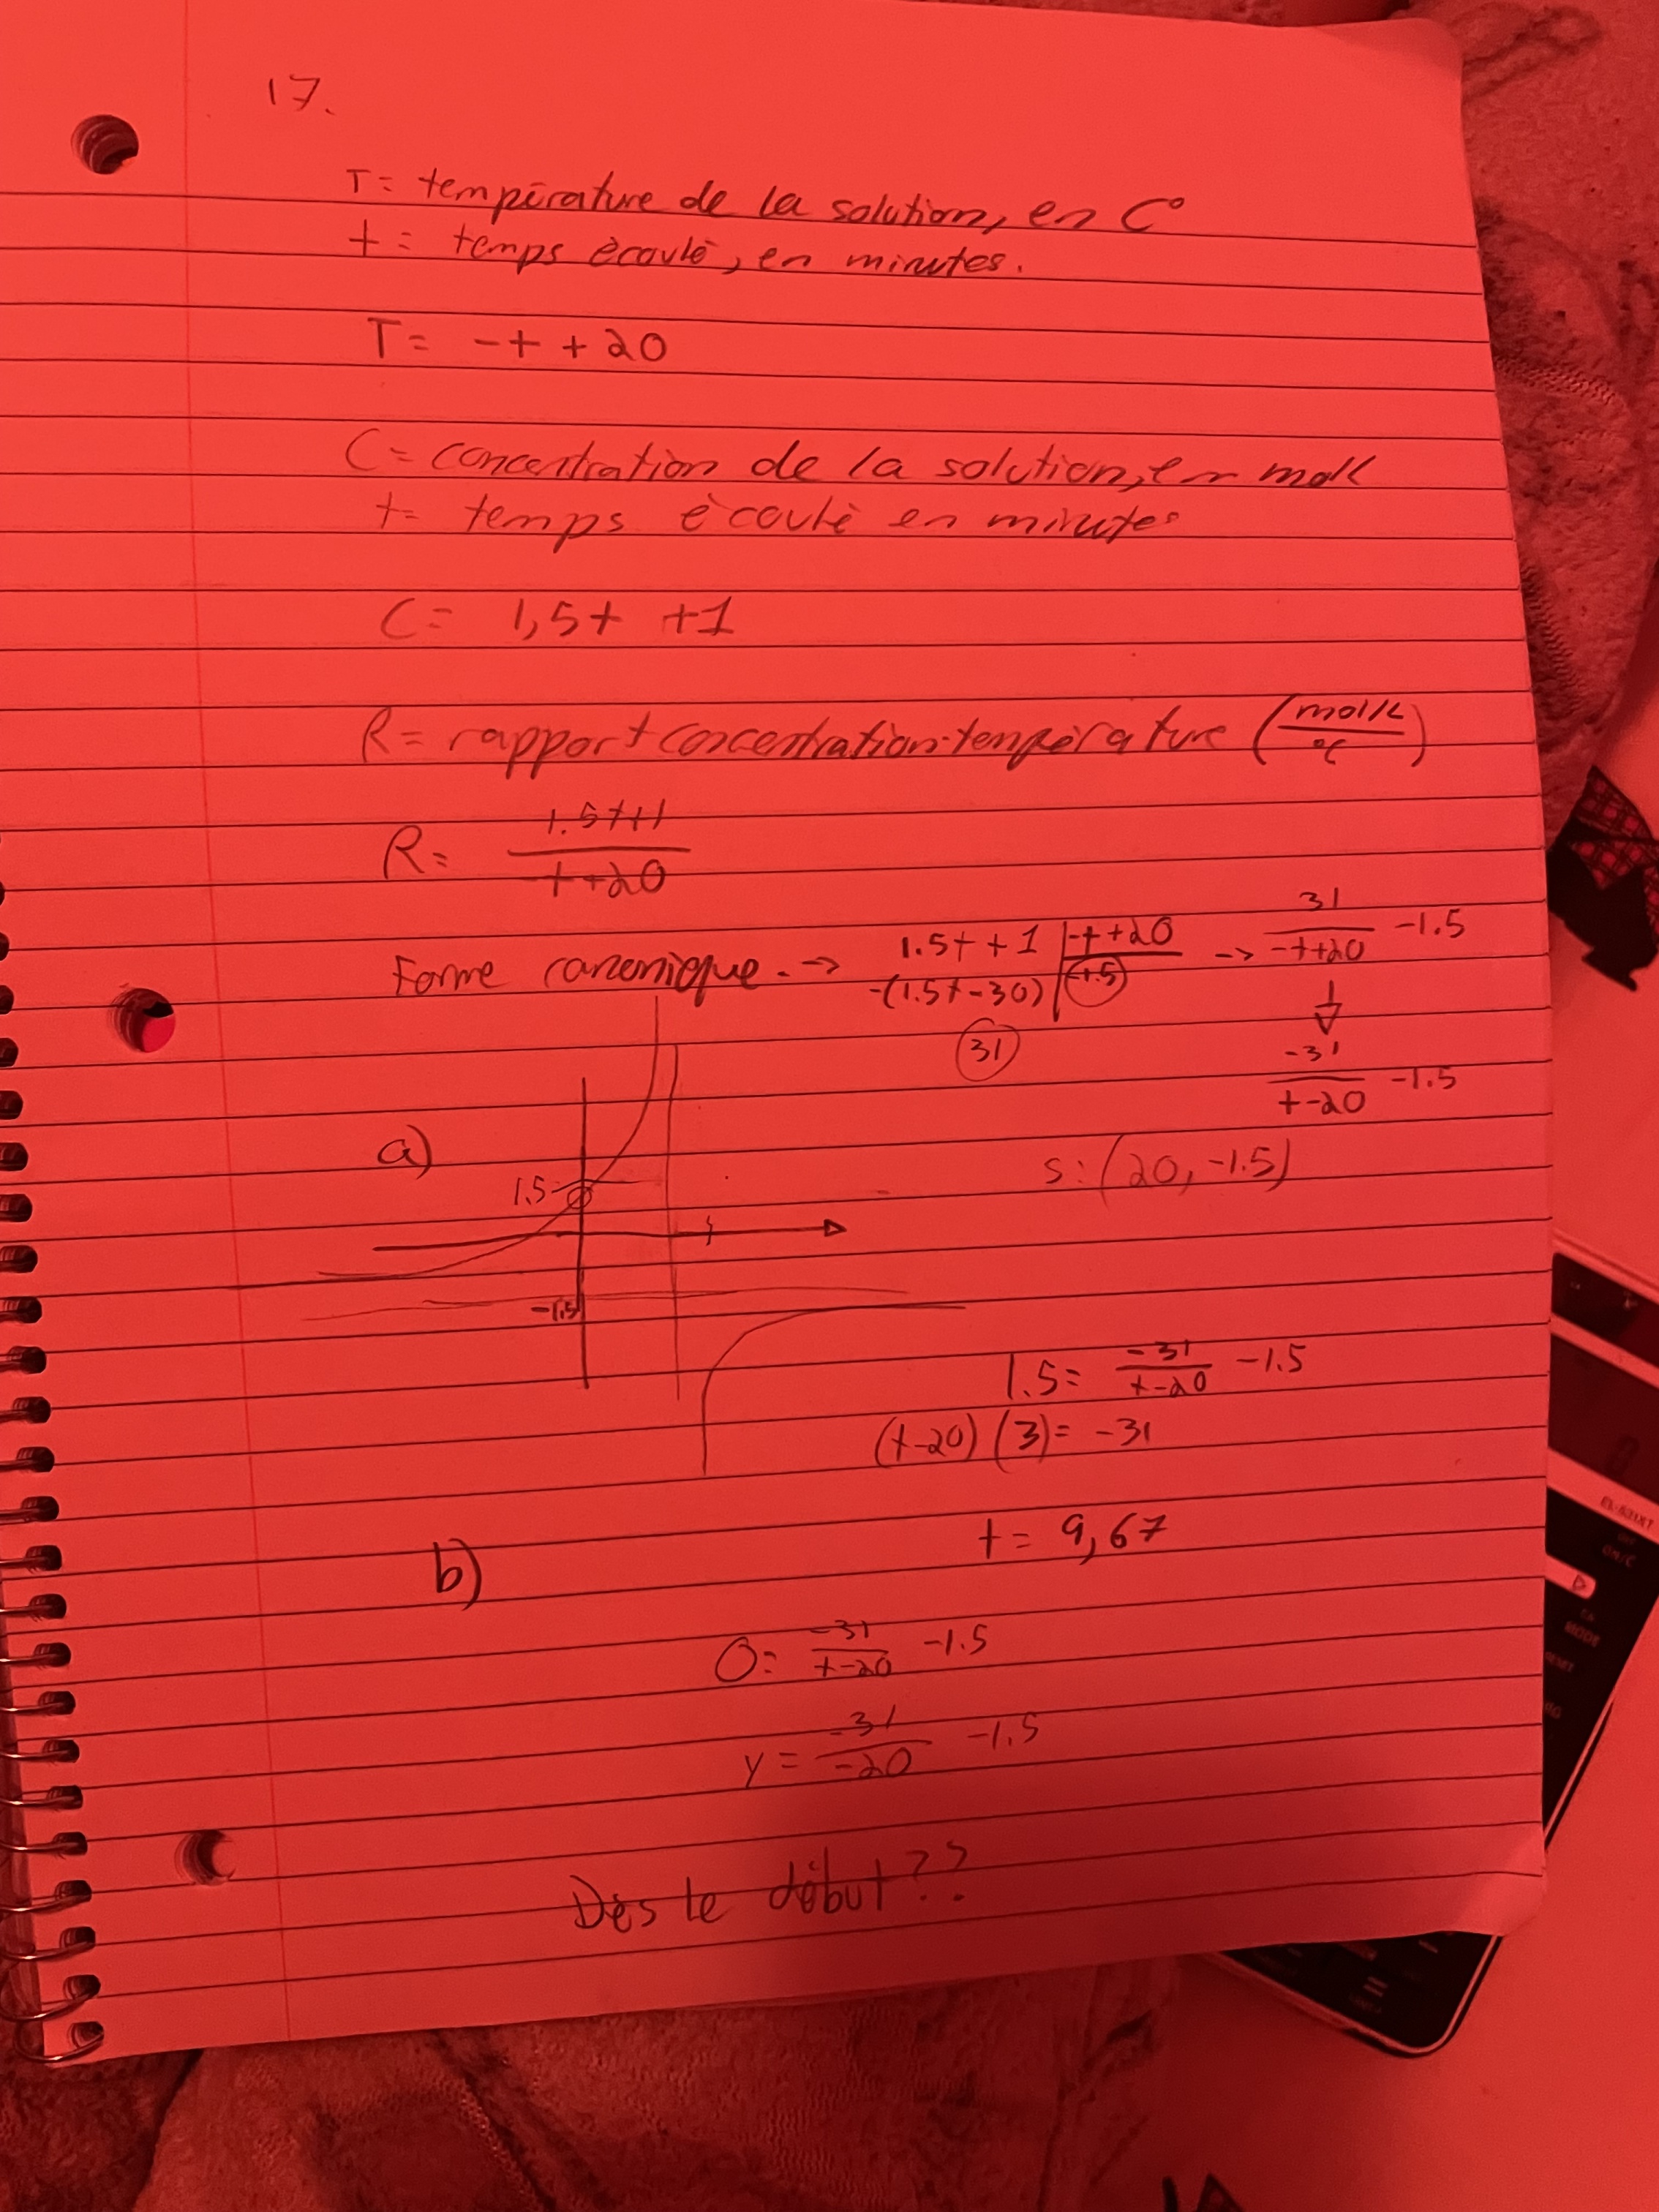 17.
T = température de la solution, en C°
t = temps écoulé, en minutes.
T = -t + 20
C = concentration de la solution, en mol/L
t = temps écoulé en minutes
C = 1,5t + 1
R = rapport concentration-température (mol/L / °C)
R = 1.5t+1 / -t+20
Forme canonique. → 1.5t + 1 | -t+20 → 31 / -t+20 -1.5
-(1.5t-30) | -1.5
31
-31 / t-20 -1.5
a)
1.5
s: (20, -1.5)
-1.5
1.5 = -31 / t-20 -1.5
(t-20) (3) = -31
t = 9,67
b)
0 = -31 / t-20 -1.5
y = -31 / -20 -1.5
Dès le début??
EL-531XT
ON/C
CA
MODE